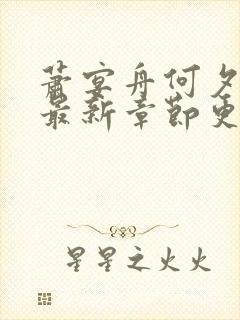 萧宴舟何夕
最新章节更
星星之火火